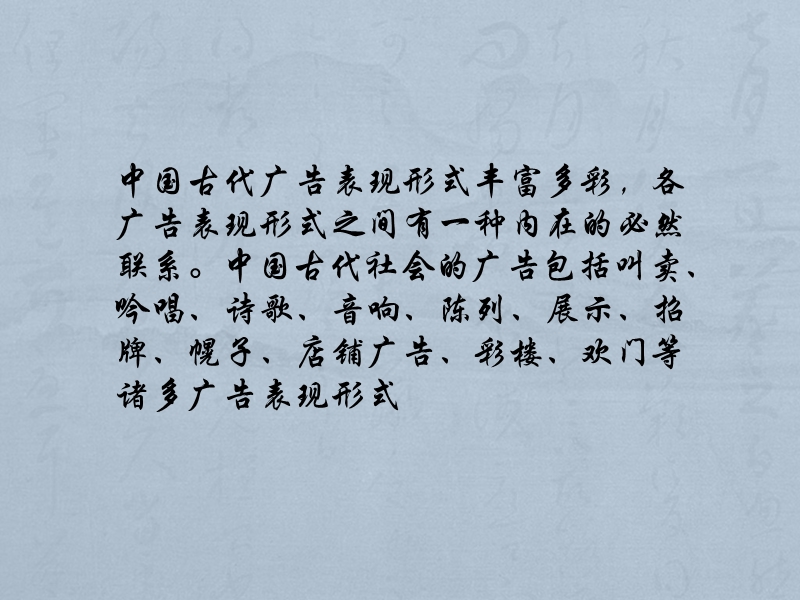 中国古代广告表现形式丰富多彩，各
广告表现形式之间有一种内在的必然
联系。中国古代社会的广告包括叫卖、
吟唱、诗歌、音响、陈列、展示、招
牌、幌子、店铺广告、彩楼、欢门等
诸多广告表现形式